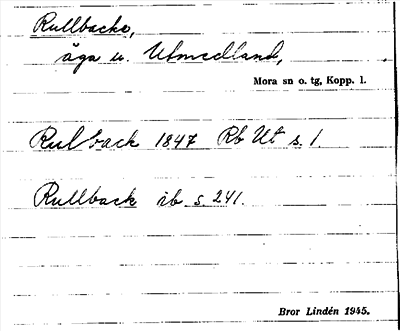 Rullbacke,
äga u. Utmedland,
Mora sn o. tg, Kopp. l.
Rulback 1847 Rb Ut s. 1
Rullback ib s. 241.
Bror Lindén 1945.